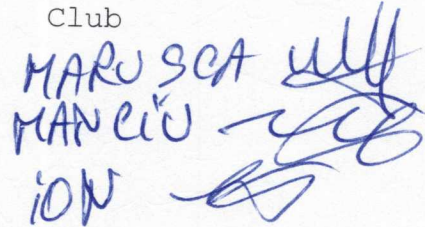 Club
MARUSCA
MANCIU
ION